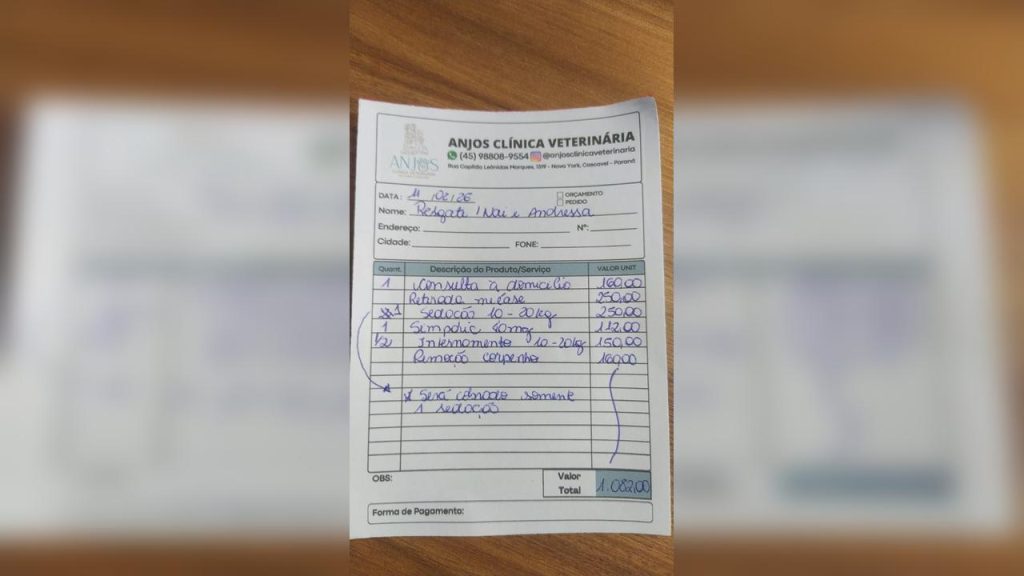 ANJOS
ANJOS CLÍNICA VETERINÁRIA
(45) 98808-9554 @anjosclinicaveterinaria
Rua Capitão Leônidas Marques, 1319 - Nova York, Cascavel - Paraná
DATA: 11/02/26
ORÇAMENTO
PEDIDO
Nome: Resgate / Nai e Andressa
Endereço: Nº:
Cidade: FONE:
Quant. Descrição do Produto/Serviço VALOR UNIT
1 Consulta à domicilio 160,00
Retirada miíase 250,00
1 Sedação 10-20kg 250,00
1 Simparic 80mg 112,00
1/2 Internamento 10-20kg 150,00
Remoção 160,00
* Será cobrado somente
1 sedação
OBS:
Valor Total 1.082,00
Forma de Pagamento: